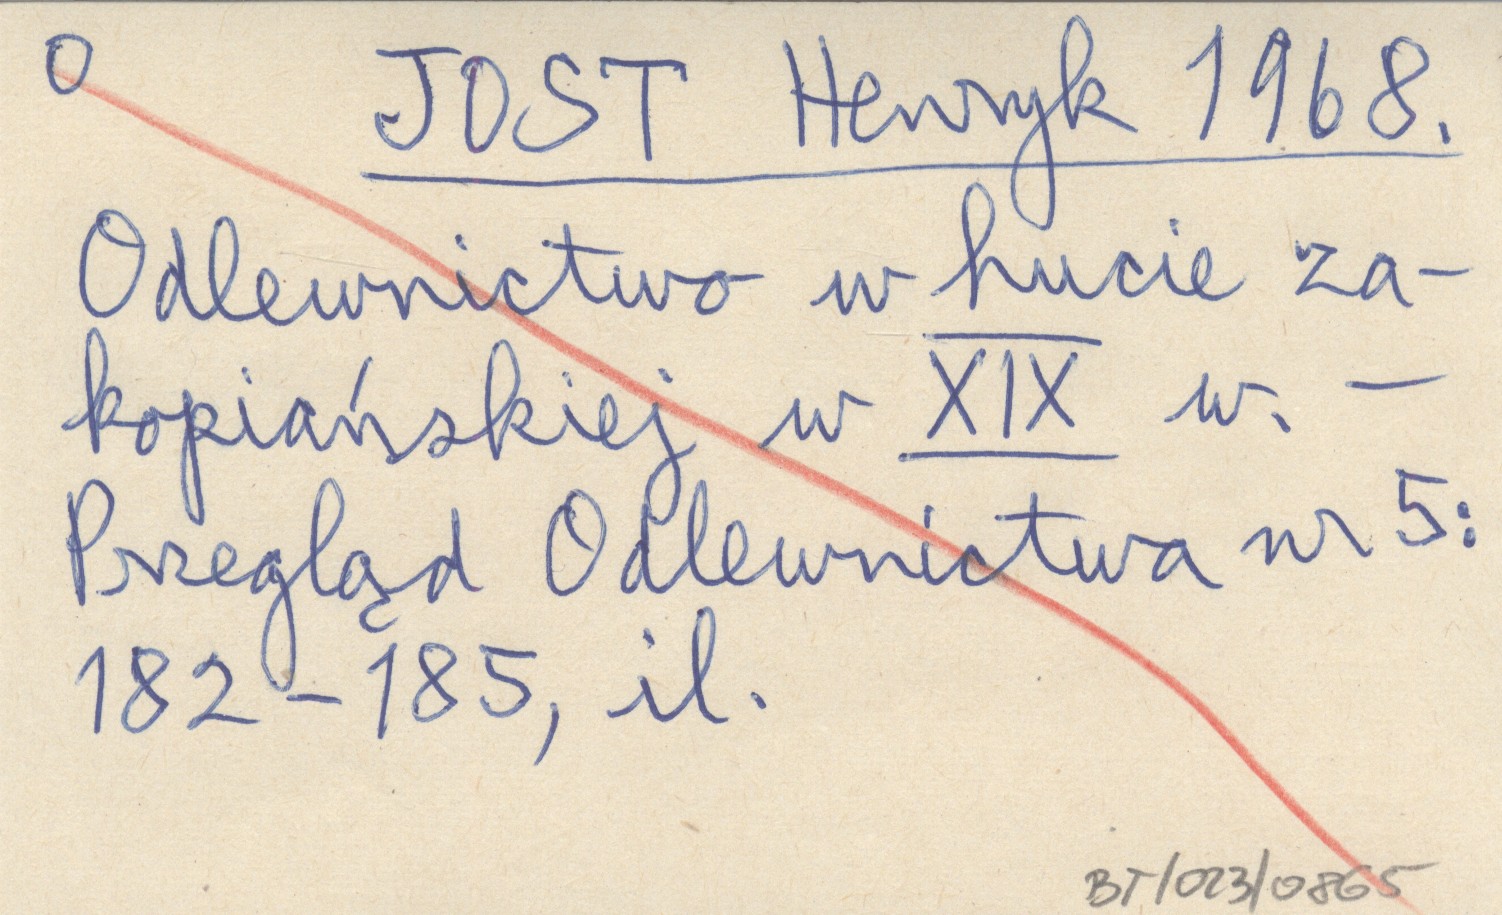 O JOST Henryk 1968.
Odlewnictwo w hucie za-
kopiańskiej w XIX w. –
Przegląd Odlewnictwa nr 5:
182–185, il.
BT/023/0865